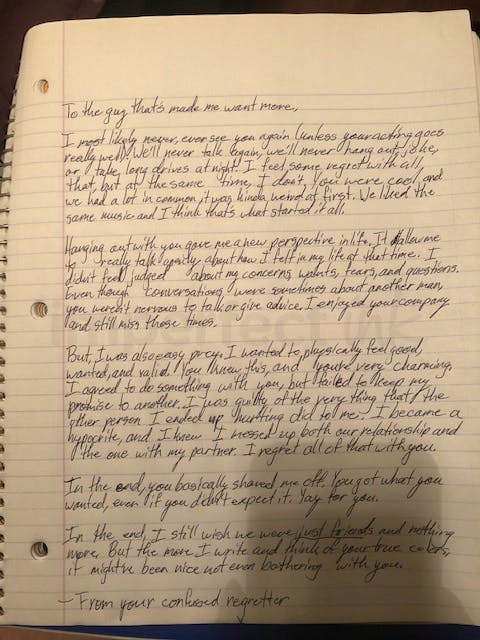 To the guy that's made me want more,
I most likely never, ever see you again (unless your acting goes
really well). We'll never talk again, we'll never hang out, joke,
or take long drives at night. I feel some regret with all
that, but at the same time, I don't. You were cool, and
we had a lot in common, it was kinda weird at first. We liked the
same music and I think that's what started it all.
Hanging out with you gave me a new perspective in life. It allow me
to really talk openly about how I felt in my life at that time. I
didn't feel judged about my concerns, wants, fears, and questions.
Even though conversations were sometimes about another man,
you weren't nervous to talk or give advice. I enjoyed your company
and still miss those times.
But, I was also easy prey. I wanted to physically feel good,
wanted, and valid. You knew this, and you're very charming.
I agreed to do something with you, but failed to keep my
promise to another. I was guilty of the very thing that the
other person I ended up hurting did to me. I became a
hypocrite, and I knew I messed up both our relationship and
the one with my partner. I regret all of that with you.
In the end, you basically shoved me off. You got what you
wanted, even if you didn't expect it. Yay for you.
In the end, I still wish we were just friends and nothing
more. But the more I write and think of your true colors,
it might've been nice not even bothering with you.
- From your confused regretter